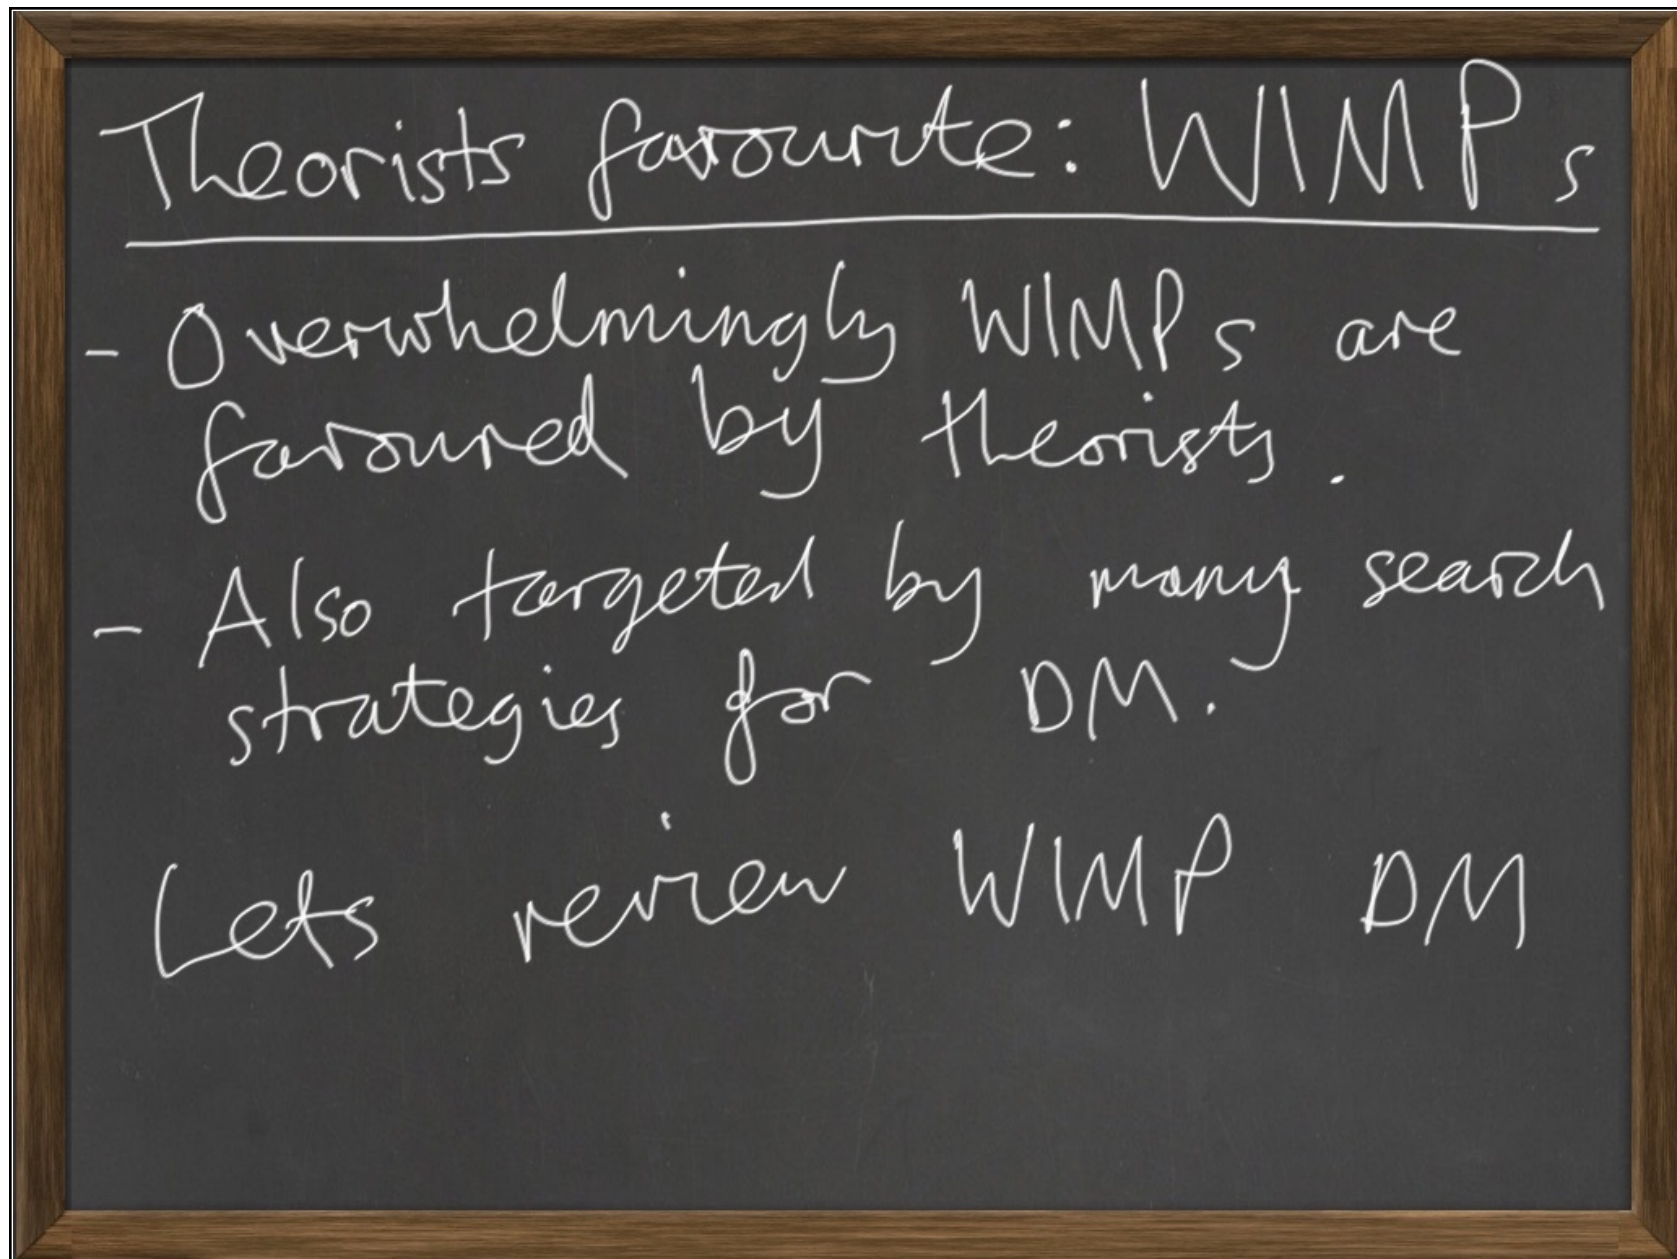 Theorists favourite: WIMPs
- Overwhelmingly WIMPs are
favoured by theorists.
- Also targeted by many search
strategies for DM.
Lets review WIMP DM